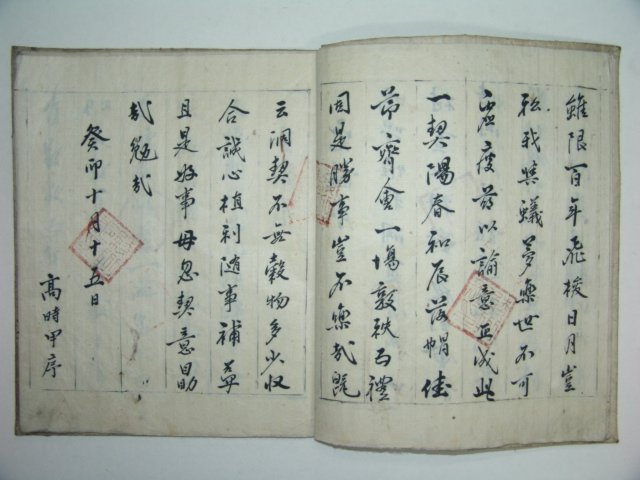 雖限百年飛梭日月豈
我蟻夢樂世不可
虛度茲以論意正成此
一契陽春和辰落帽佳
節齊會一場敦秩而禮
固是勝事豈不樂哉既
云洞契不無穀物多少收
合誠心植利随事補益
且是好事毋忽契意勗
哉勉哉
癸卯十月十五日
高時甲序